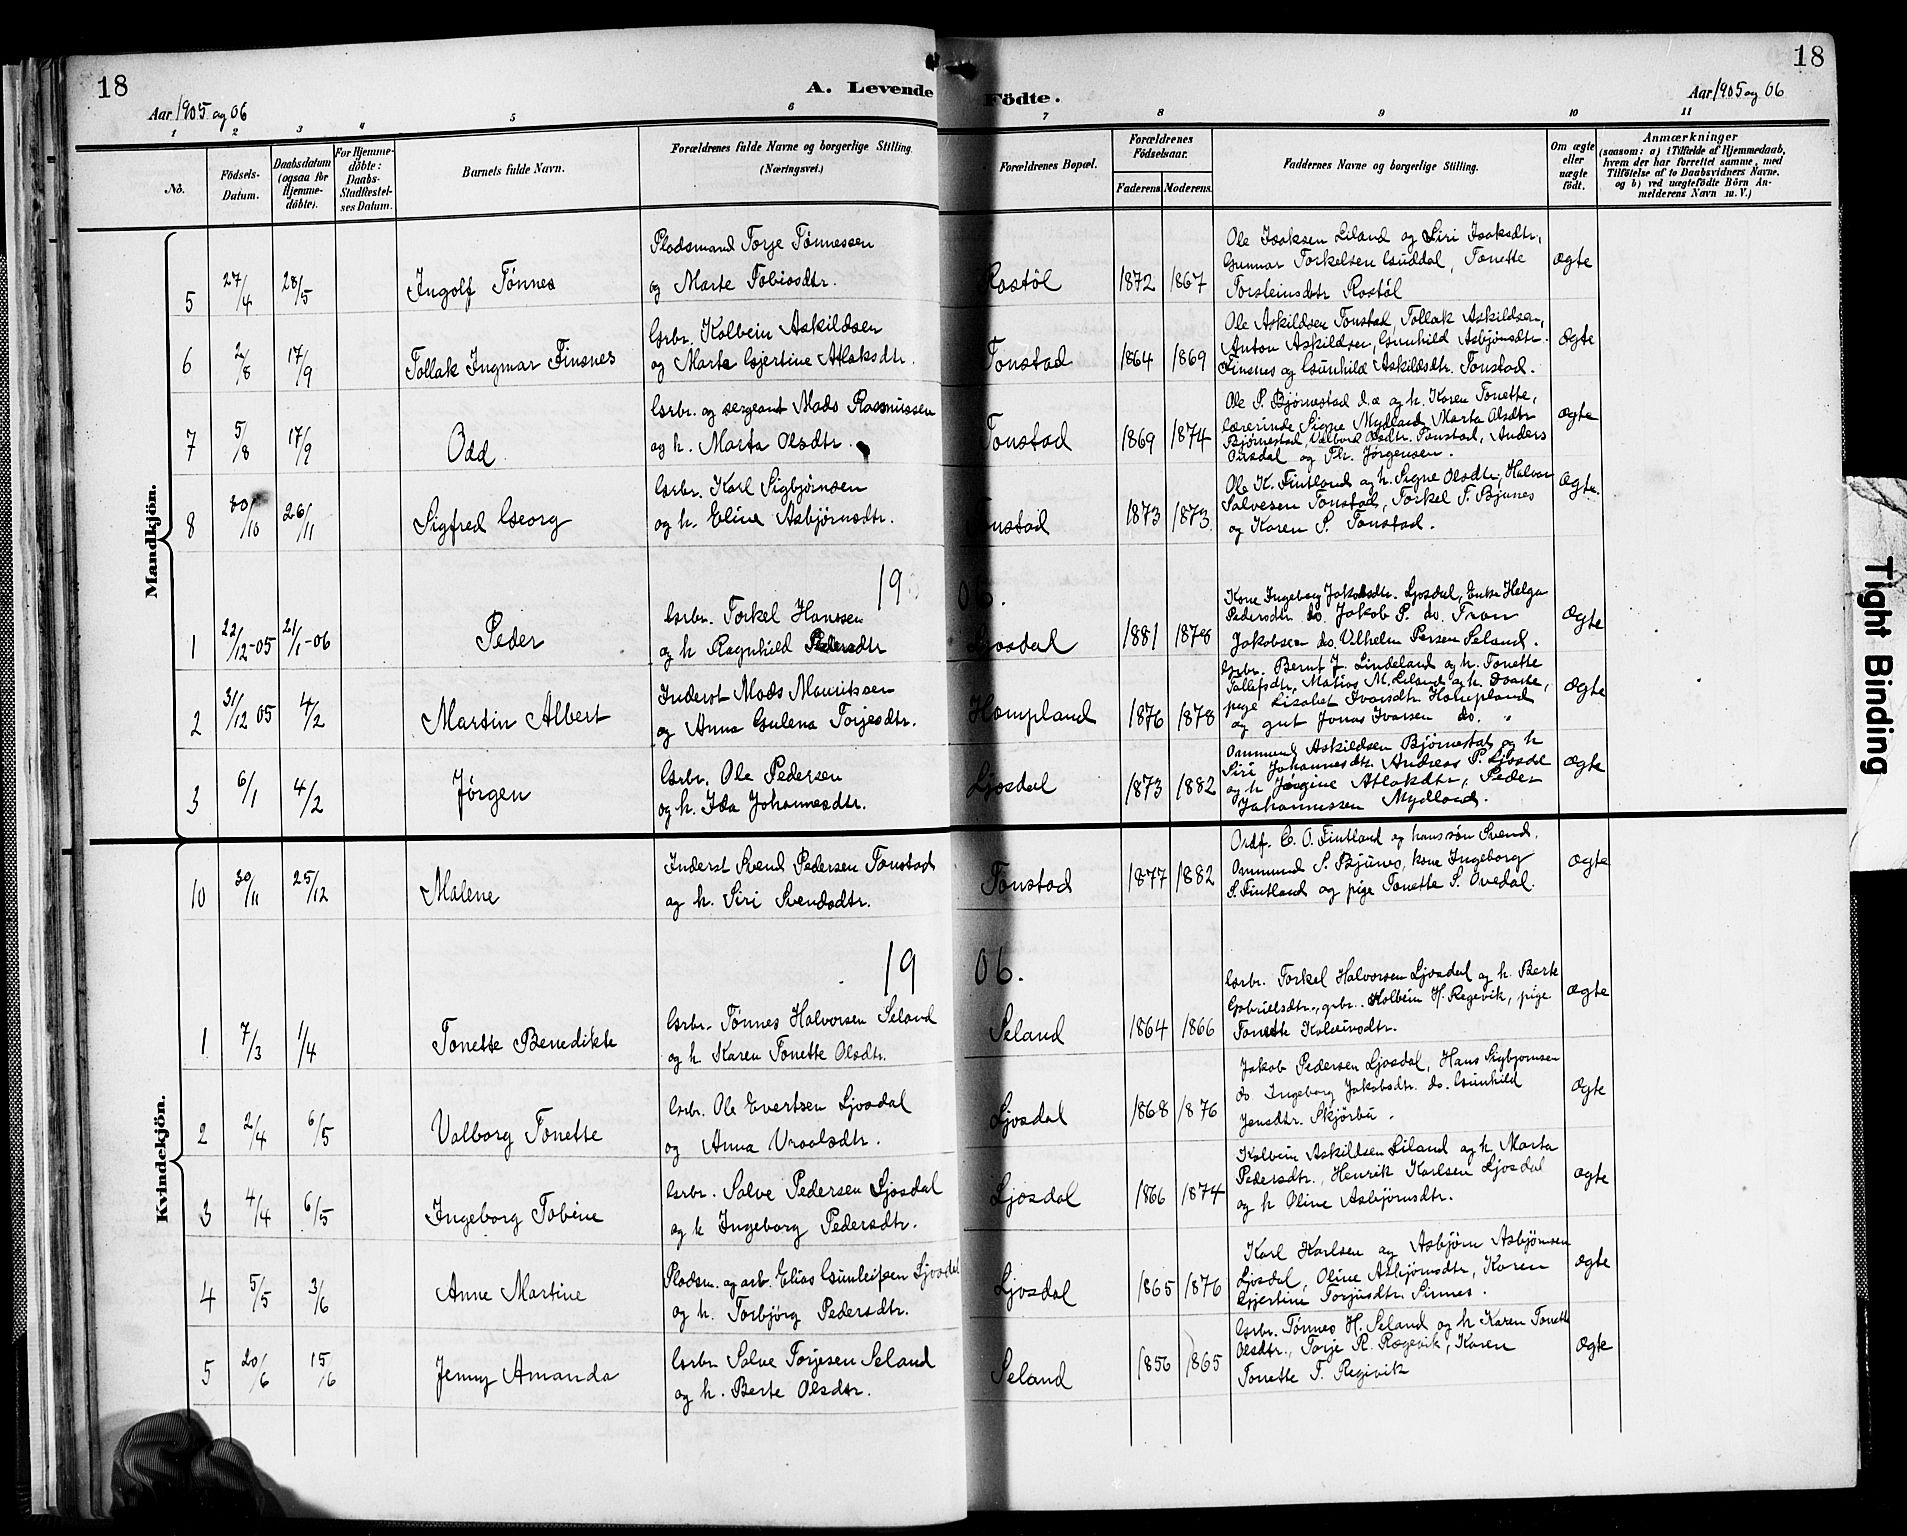 18
18
A. Levende Födte.
Aar 1905 og 06
Aar 1905 og 06
1 2 3 4 5 6 7 8 9 10 11
No.
Födsels-Datum.
Daabsdatum (ogsaa for Hjemme-döbte).
For Hjemme-döbte: Daabs-Stadfæstel-ses Datum.
Barnets fulde Navn.
Forældrenes fulde Navne og borgerlige Stilling (Næringsvei.)
Forældrenes Bopæl.
Forældrenes Födselsaar.
Faderens. Moderens.
Faddernes Navne og borgerlige Stilling.
Om ægte eller uægte födt.
Anmærkninger
(saasom: a) i Tilfælde af Hjemmedaab,
hvem der har forrettet samme, med
Tilföielse af to Daabsvidners Navne,
og b) ved uægtefödte Börn An-
melderens Navn m. V.)
Mandkjön.
5 27/4 28/5 Ingolf Tønnes
Plodsmand Torje Tønnessen
og Marte Tobiasdtr.
Rostøl 1872 1867
Ole Isaksen Liland og Siri Isaksdtr,
Gunnar Torkelsen Guddal, Tonette
Torsteinsdtr Rostøl
ægte
6 2/8 17/9 Tollak Ingmar Finsnes
Grbr. Kolbein Askildsen
og Marta Gjertine Atlaksdtr.
Tonstad 1864 1869
Ole Askildsen Tonstad, Tollak Askildsen,
Anton Askildsen, Gunhild Asbjørnsdtr.
Finsnes og Gunhild Askildsdtr. Tonstad.
ægte
7 5/8 17/9 Odd.
Grbr. og sergeant Mads Rasmussen
og h. Marta Olsdtr.
Tonstad 1869 1874
Ole P. Bjørnestad d.æ og h. Karen Tonette,
lærerinde Signe Mydland, Marta Olsdtr
Bjørnestad, Valborg Olsdtr. Tonstad, Anders
Ousdal og Th. Jørgensen.
ægte
8 30/10 26/11 Sigfred Georg
Grbr. Karl Sigbjørnsen
og h. Eline Asbjørnsdtr.
Tonstad 1873 1873
Ole K. Fintland og h. Signe Olsdtr, Halvor
Salvesen Tonstad, Torkel T. Bjunes
og Karen S. Tonstad.
ægte.
1906.
1 22/12-05 21/1-06 Peder
Grbr. Torkel Hanssen
og h Ragnhild Pedersdtr
Ljosdal 1881 1878
Kone Ingeborg Jakobsdtr. Ljosdal, Enke Helga
Pedersdtr do. Jakob P. do. Tron
Jakobsen do. Vilhelm Persen Seland.
ægte
2 31/12 05 4/2 Martin Albert
Inderst Mads Mauritssen
og Anna Gulena Torjesdtr.
Hompland 1876 1878
Grbr. Bernt J. Lindeland og h. Tonette
Tollefsdtr, Matias M. Liland og h. Dorte,
pige Lisabet Ivarsdtr Hompland
og gut Jonas Ivarsen do.
ægte
3 6/1 4/2 Jørgen
Grbr. Ole Pedersen
og h. Ida Johannesdtr.
Ljosdal 1873 1882
Ommund Askildsen Bjørnestad og h
Siri Johannesdtr Andreas P. Ljosdal
og h Jørgine Atlakdtr, Peder
Johannessen Mydland.
ægte
Kvindekjön.
10 30/11 25/12 Malene
Inderst Svend Pedersen Tonstad
og h. Siri Svendsdtr.
Tonstad 1877 1882
Ordf. C. O. Fintland og hans søn Svend.
Ommund S. Bjunes, kone Ingeborg
S. Fintland og pige Tonette S. Ovedal.
ægte
1906.
1 7/3 1/4 Tonette Benedikte
Grbr. Tønnes Halvorsen Seland
og h. Karen Tonette Olsdtr.
Seland 1864 1866
Grbr. Torkel Halvorsen Ljosdal og h. Berte
Gabrielsdtr., grbr. Kolbein H. Regevik, pige
Tonette Kolbeinsdtr.
ægte
2 2/4 6/5 Valborg Tonette
Grbr. Ole Evertsen Ljosdal
og Anna Vraalsdtr.
Ljosdal 1868 1876
Jakob Pedersen Ljosdal, Hans Sigbjørnsen
do Ingeborg Jakobsdtr. do. Gunhild
Jensdtr. Skjørbu.
ægte
3 4/4 6/5 Ingeborg Tobine
Grbr. Salve Pedersen Ljosdal
og h Ingeborg Pedersdtr.
Ljosdal 1866 1874
Kolbein Askildsen Liland og h. Marta
Pedersdtr., Henrik Karlsen Ljosdal
og h Oline Asbjørnsdtr.
ægte
4 5/5 3/6 Anne Martine
Pladsm. og arb. Elias Gunleifsen Ljosdal
og h. Torbjørg Pedersdtr.
Ljosdal 1865 1876
Karl Karlsen og Asbjørn Asbjørnsen
Ljosdal, Oline Asbjørnsdtr, Karen
Gjertine Torjusdtr. Sirnes.
ægte
5 20/6 15/6 Jenny Amanda
Grbr Salve Torjesen Seland
og h. Berte Olsdtr.
Seland 1856 1865
Grbr. Tønnes H. Seland og h Karen Tonette
Olsdtr., Torje R. Regevik, Karen
Tonette T. Regivik
ægte
Tight Binding